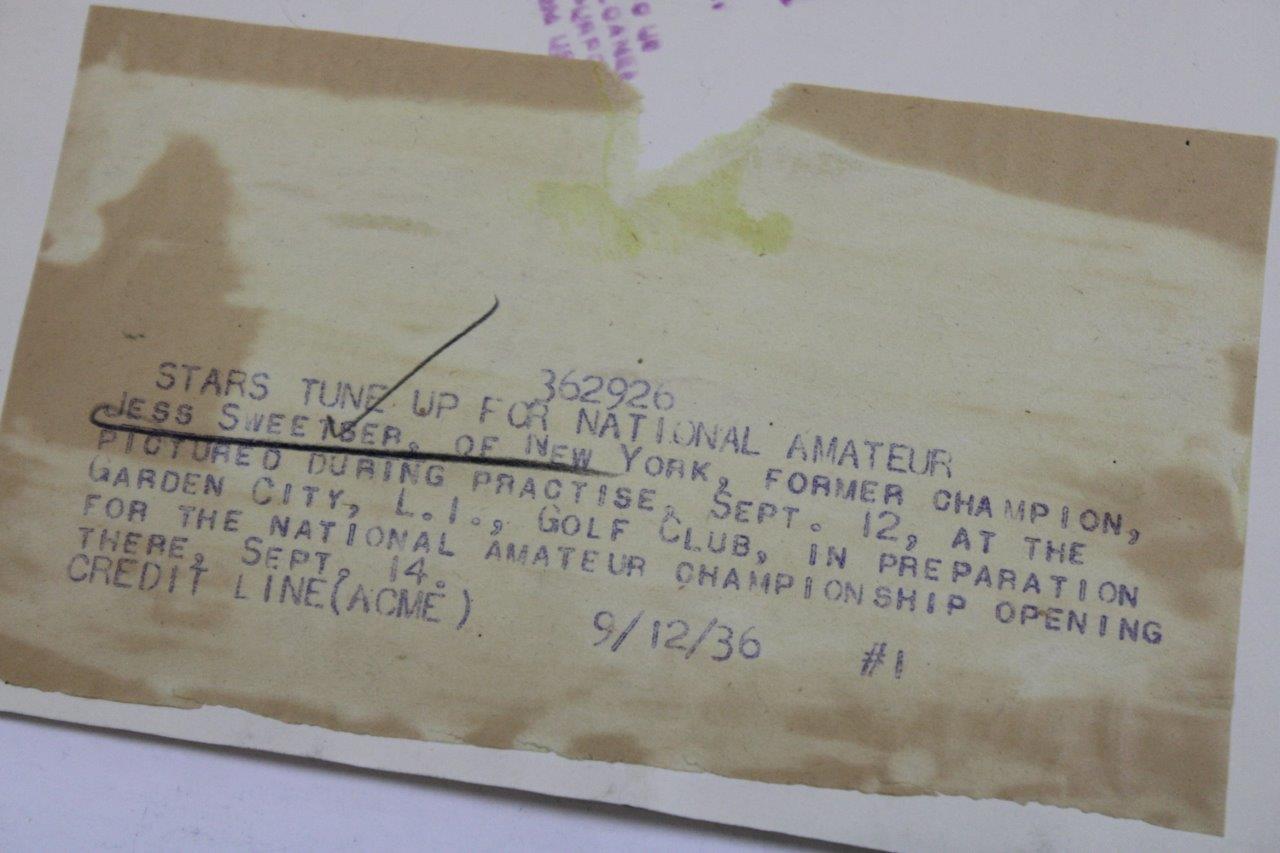 362926
STARS TUNE UP FOR NATIONAL AMATEUR
JESS SWEETSER, OF NEW YORK, FORMER CHAMPION,
PICTURED DURING PRACTISE, SEPT. 12, AT THE
GARDEN CITY, L.I., GOLF CLUB, IN PREPARATION
FOR THE NATIONAL AMATEUR CHAMPIONSHIP OPENING
THERE, SEPT. 14.
CREDIT LINE(ACME) 9/12/36 #1